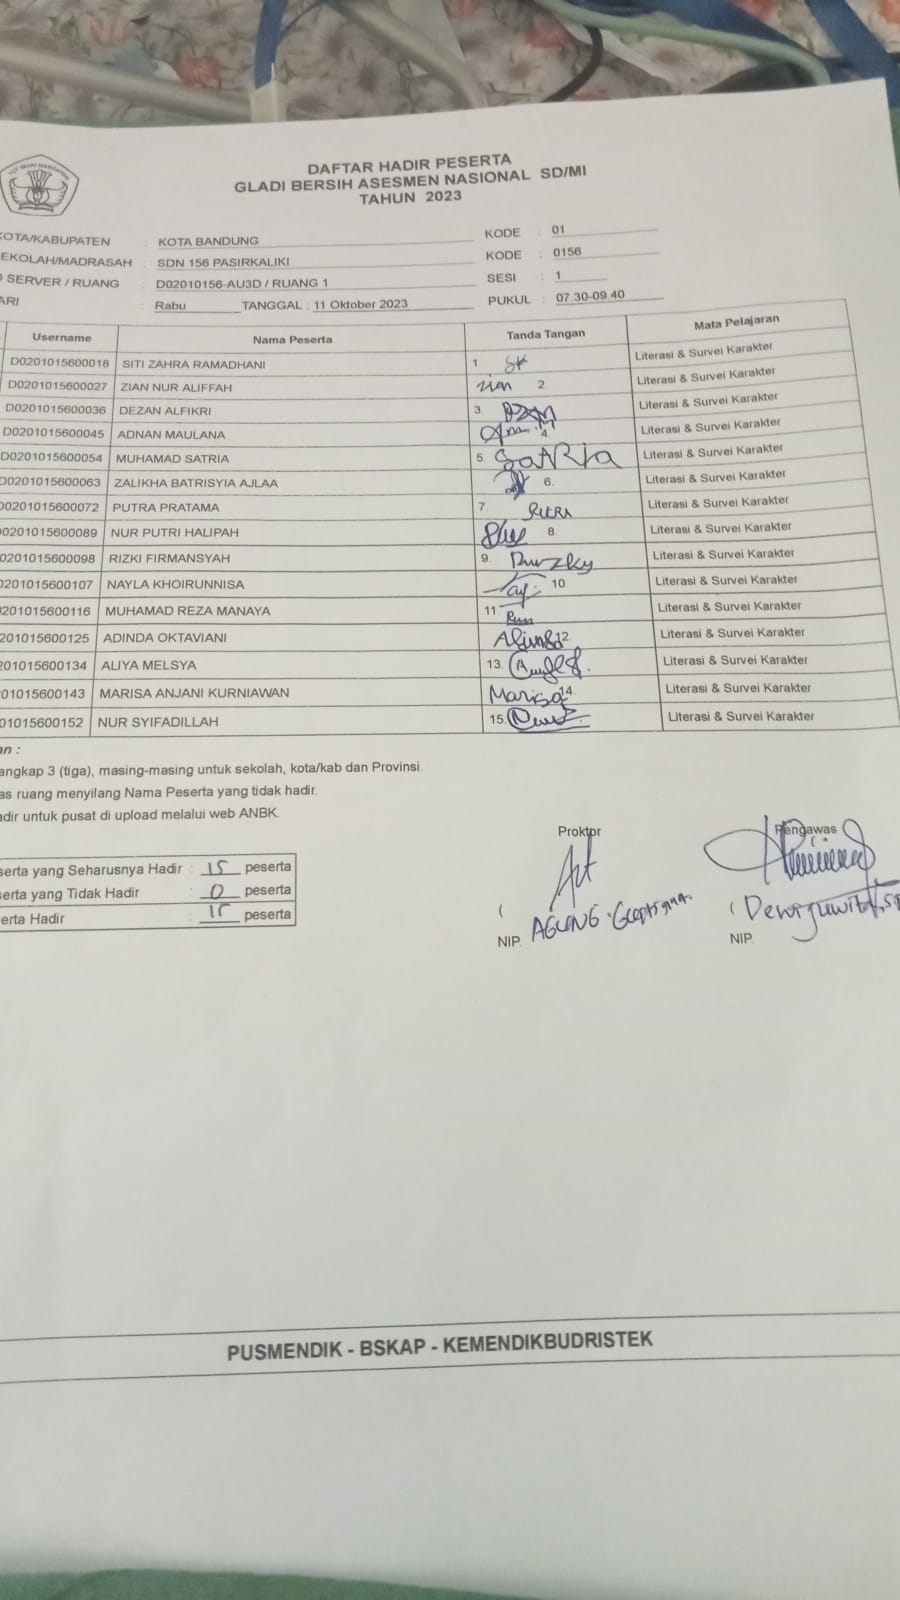 DAFTAR HADIR PESERTA
GLADI BERSIH ASESMEN NASIONAL SD/MI
TAHUN 2023
KOTA/KABUPATEN : KOTA BANDUNG KODE : 01
EKOLAH/MADRASAH : SDN 156 PASIRKALIKI KODE : 0156
SERVER / RUANG : D02010156-AU3D / RUANG 1 SESI : 1
ARI : Rabu TANGGAL : 11 Oktober 2023 PUKUL : 07.30-09.40
Username Nama Peserta Tanda Tangan Mata Pelajaran
D0201015600018 SITI ZAHRA RAMADHANI 1. Literasi & Survei Karakter
D0201015600027 ZIAN NUR ALIFFAH zian 2. Literasi & Survei Karakter
D0201015600036 DEZAN ALFIKRI 3. Literasi & Survei Karakter
D0201015600045 ADNAN MAULANA 4. Literasi & Survei Karakter
D0201015600054 MUHAMAD SATRIA 5. SatRia Literasi & Survei Karakter
D0201015600063 ZALIKHA BATRISYIA AJLAA 6. Literasi & Survei Karakter
D0201015600072 PUTRA PRATAMA 7. Literasi & Survei Karakter
0201015600089 NUR PUTRI HALIPAH 8. Literasi & Survei Karakter
0201015600098 RIZKI FIRMANSYAH 9. Literasi & Survei Karakter
0201015600107 NAYLA KHOIRUNNISA 10. Literasi & Survei Karakter
0201015600116 MUHAMAD REZA MANAYA 11. Literasi & Survei Karakter
201015600125 ADINDA OKTAVIANI 12. Literasi & Survei Karakter
201015600134 ALIYA MELSYA 13. Literasi & Survei Karakter
01015600143 MARISA ANJANI KURNIAWAN Marisa 14. Literasi & Survei Karakter
01015600152 NUR SYIFADILLAH 15. Literasi & Survei Karakter
an :
angkap 3 (tiga), masing-masing untuk sekolah, kota/kab dan Provinsi.
as ruang menyilang Nama Peserta yang tidak hadir.
adir untuk pusat di upload melalui web ANBK.
Proktor Pengawas
serta yang Seharusnya Hadir : 15 peserta
serta yang Tidak Hadir : 0 peserta
erta Hadir : 15 peserta
( AGUNG (
NIP. NIP.
PUSMENDIK - BSKAP - KEMENDIKBUDRISTEK